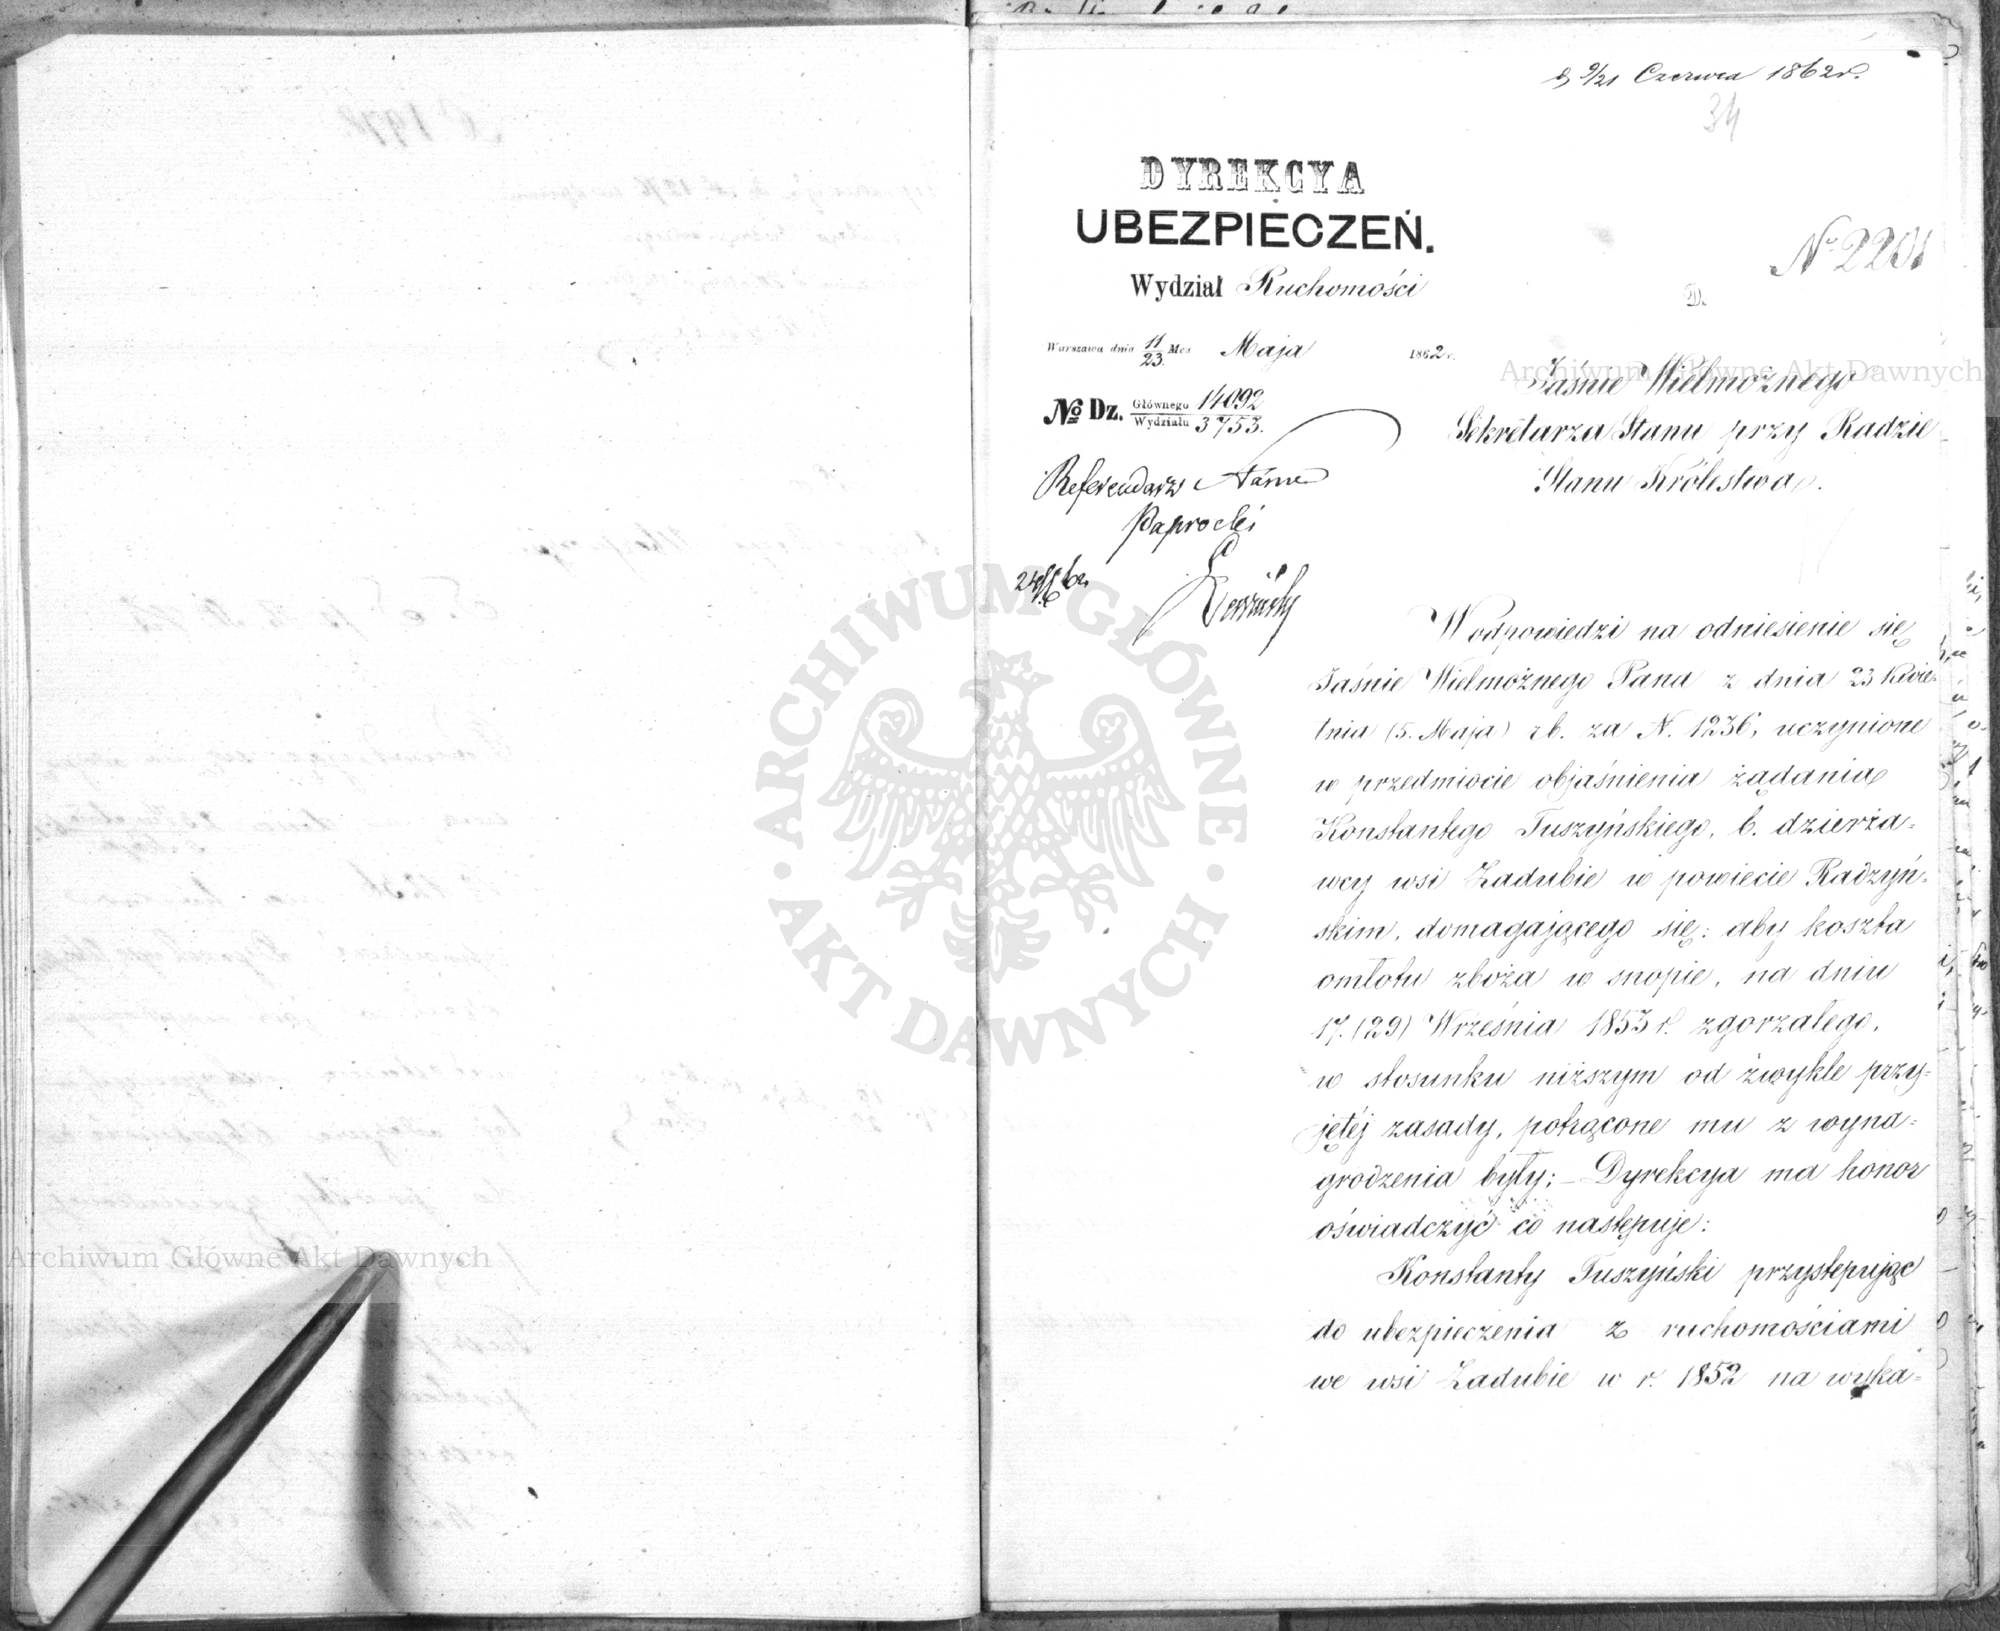 d 9/21 Czerwca 1862 r.
34
DYREKCYA
UBEZPIECZEŃ.
Wydział Ruchomości
No 2201
D.
Warszawa dnia 11/23 Mca Maja 1862 r.
Jaśnie Wielmożnego
Sekretarza Stanu przy Radzie
Stanu Królestwa.
No Dz. Głównego 14092
Wydziału 3753.
Referendarz
Paprocki
W odpowiedzi na odniesienie się
Jaśnie Wielmożnego Pana z dnia 23 Kwie-
tnia (5. Maja) r b. za N. 1236, uczynione
w przedmiocie objaśnienia żądania
Konstantego Tuszyńskiego, b. dzierża=
wcy wsi Zadubie w powiecie Radzyń-
skim, domagającego się: aby koszta
omłotu zboża w snopie, na dniu
17. (29) Września 1853 r. zgorzałego,
w stosunku niższym od zwykle przy-
jętéj zasady, potrącone mu z wyna=
grodzenia były; – Dyrekcya ma honor
oświadczyć co następuje:
Konstanty Tuszyński przystępując
do ubezpieczenia z ruchomościami
we wsi Zadubie w r. 1852 na wyka=
Archiwum Główne Akt Dawnych
Archiwum Główne Akt Dawnych
ARCHIWUM GŁÓWNE
AKT DAWNYCH